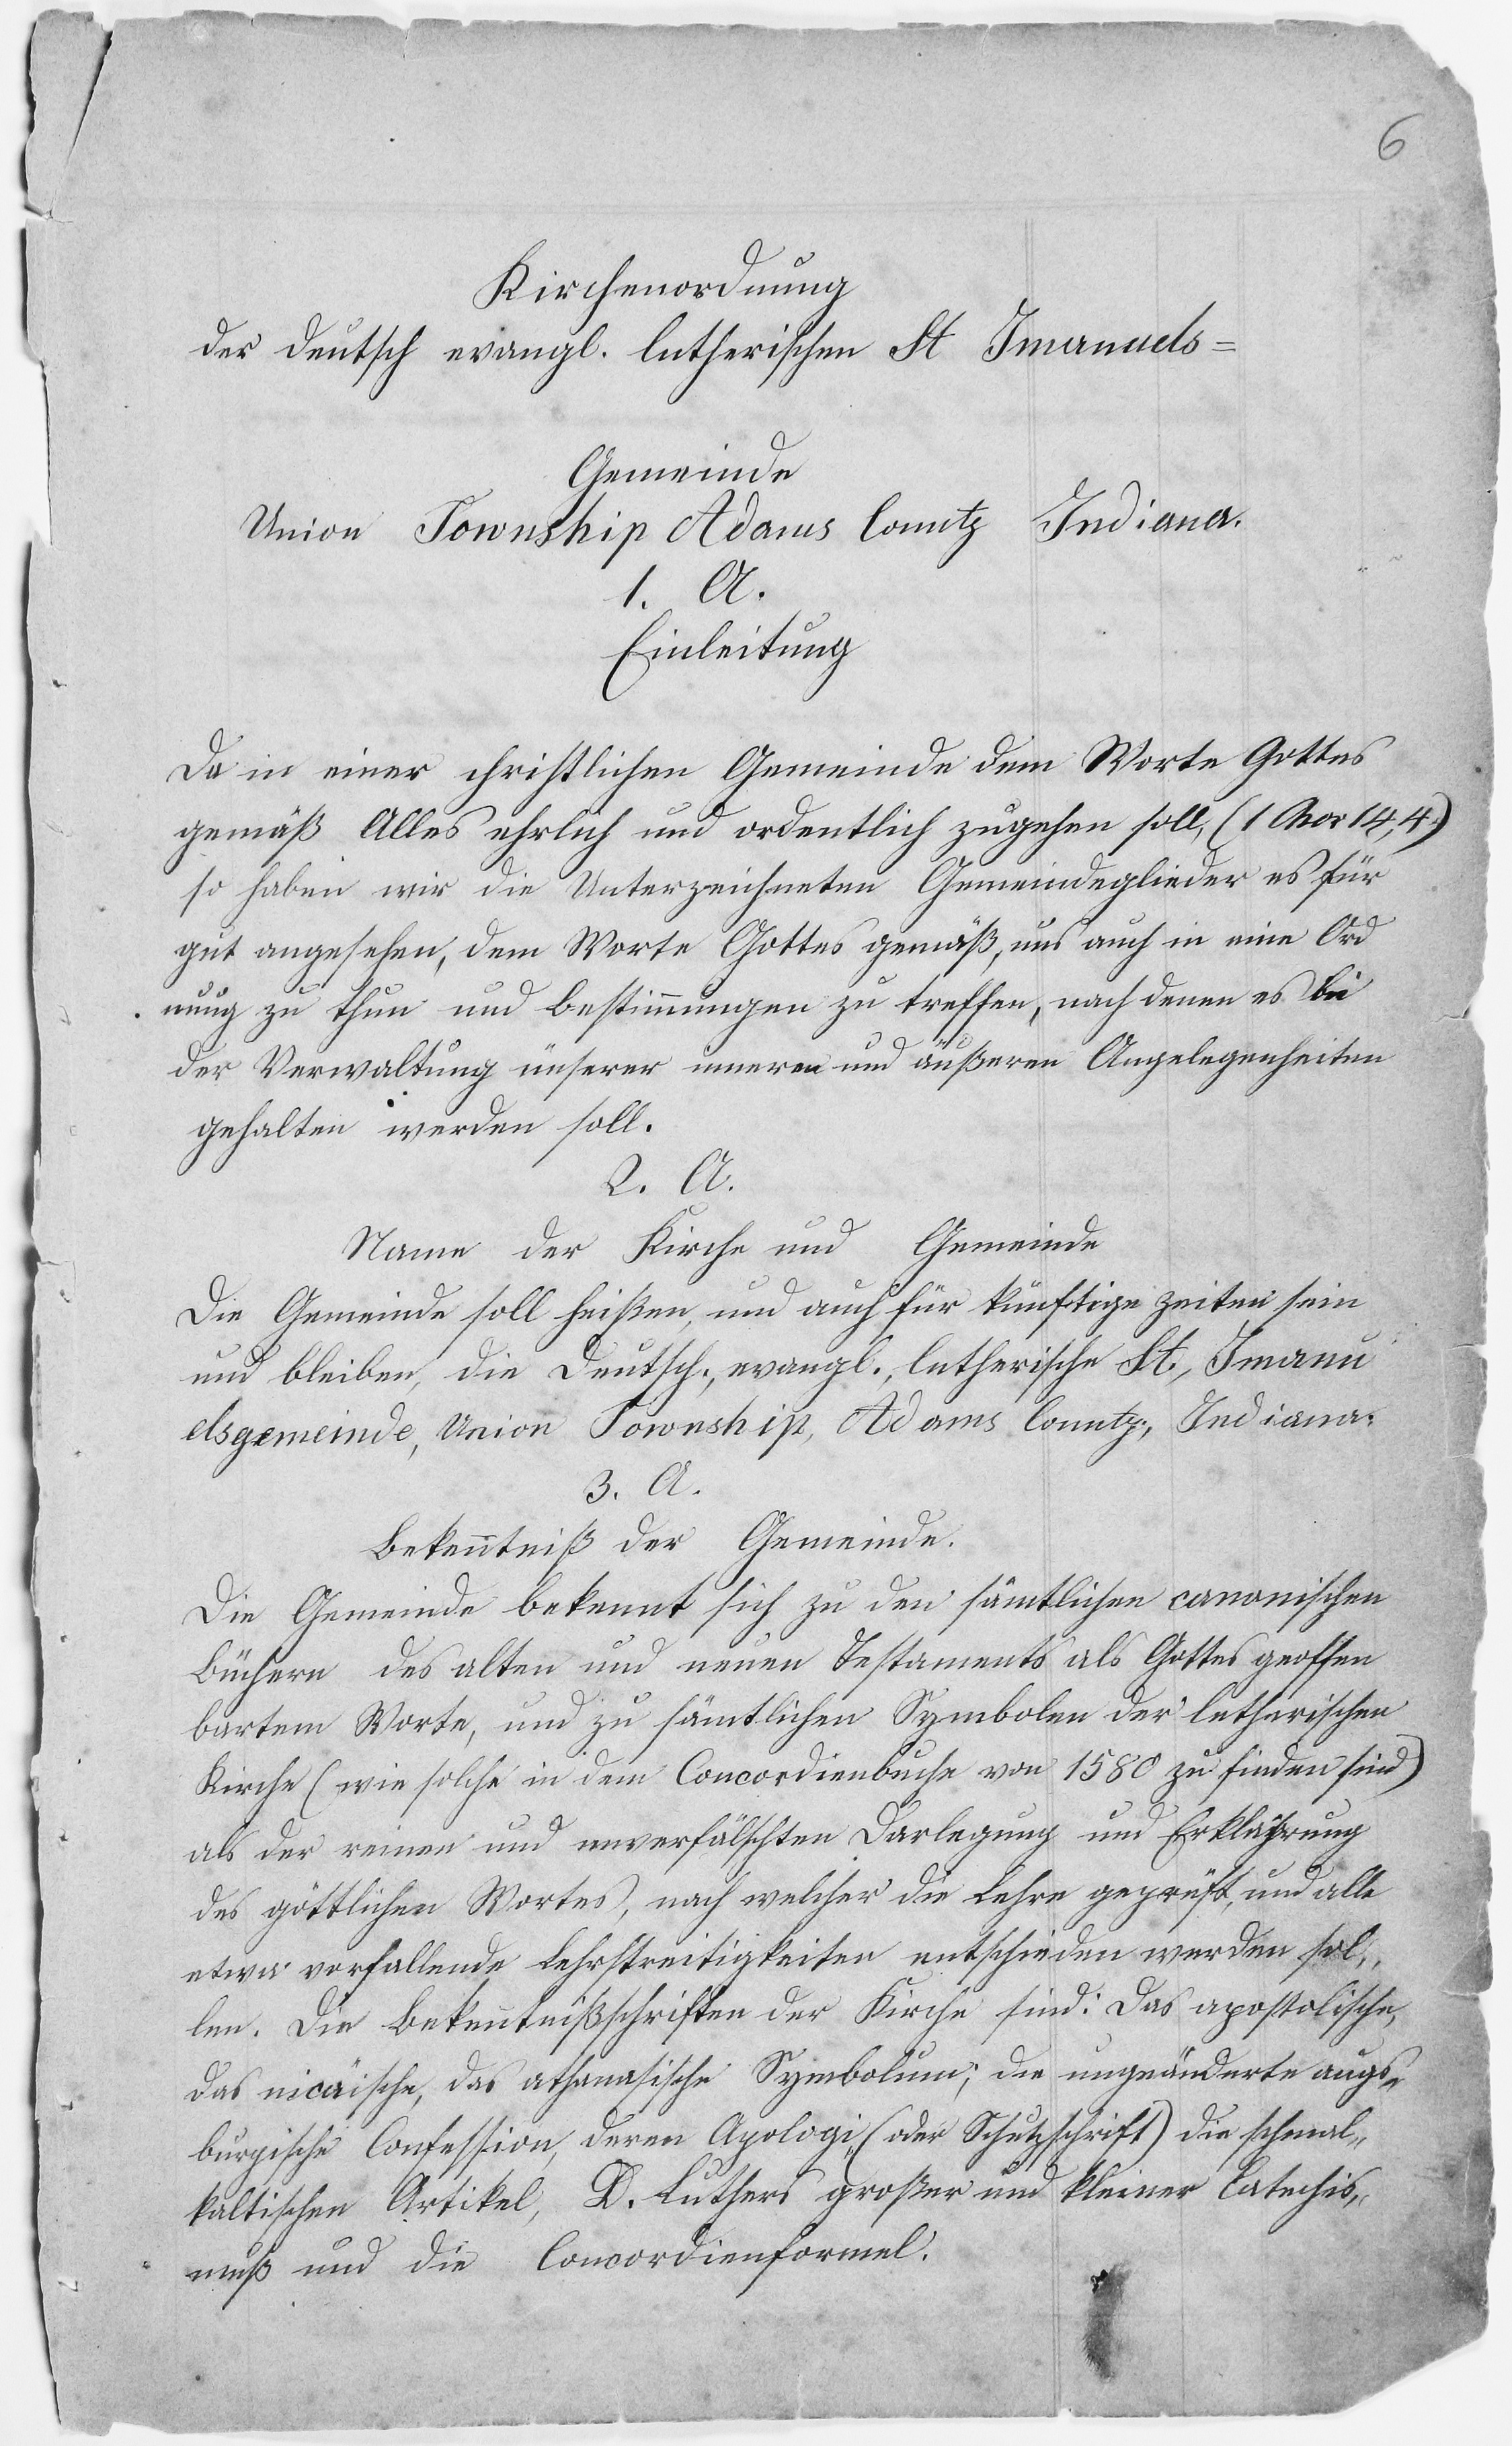 6
Kirchenordnung
der deutsch evangl. lutherischen St Imanuels=
Gemeinde
Union Township Adams County Indiana.
1. A.
Einleitung
Da in einer christlichen Gemeinde dem Worte Gottes
gemäß Alles ehrlich und ordentlich zugehen soll, (1 Cor 14, 4.)
so haben wir die Unterzeichneten Gemeindeglieder es für
gut angesehen, dem Worte Gottes gemäß, uns auch in eine Ord
nung zu thun und bestim̄ungen zu treffen, nach denen es bei
der Verwaltung unserer inneren und äußeren Angelegenheiten
gehalten werden soll.
2. A.
Name der Kirche und Gemeinde
Die Gemeinde soll heißen, und auch für künftige zeiten sein
und bleiben, die Deutsch., evangl., lutherische St., Imanu
elsgemeinde, Union Township, Adams County, Indiana.
3. A.
Beken̄tniß der Gemeinde.
Die Gemeinde bekennt sich zu den sämtlichen canonischen
Büchern des alten und neuen Testaments als Gottes geoffen
bartem Worte, und zu sämtlichen Symbolen der lutherischen
Kirche (wie solche in dem Concordienbuche von 1580 zu finden sind)
als der reinen und unverfälschten Darlegung und Erklährung
des göttlichen Wortes, nach welcher die Lehre geprüft, und alle
etwa vorfallende Lehrstreitigkeiten entschieden werden sol„
len. Die Bekentnißschriften der Kirche sind: Das apostolische,
das nicäische, das athanasische Symbolum; die ungeänderte augs„
burgische Confession, deren Apologi„ (oder Schutzschrift) die schmal„
kaltischen Artikel, D. Luthers großer und kleiner Catechis„
muß und die Concordienformel.